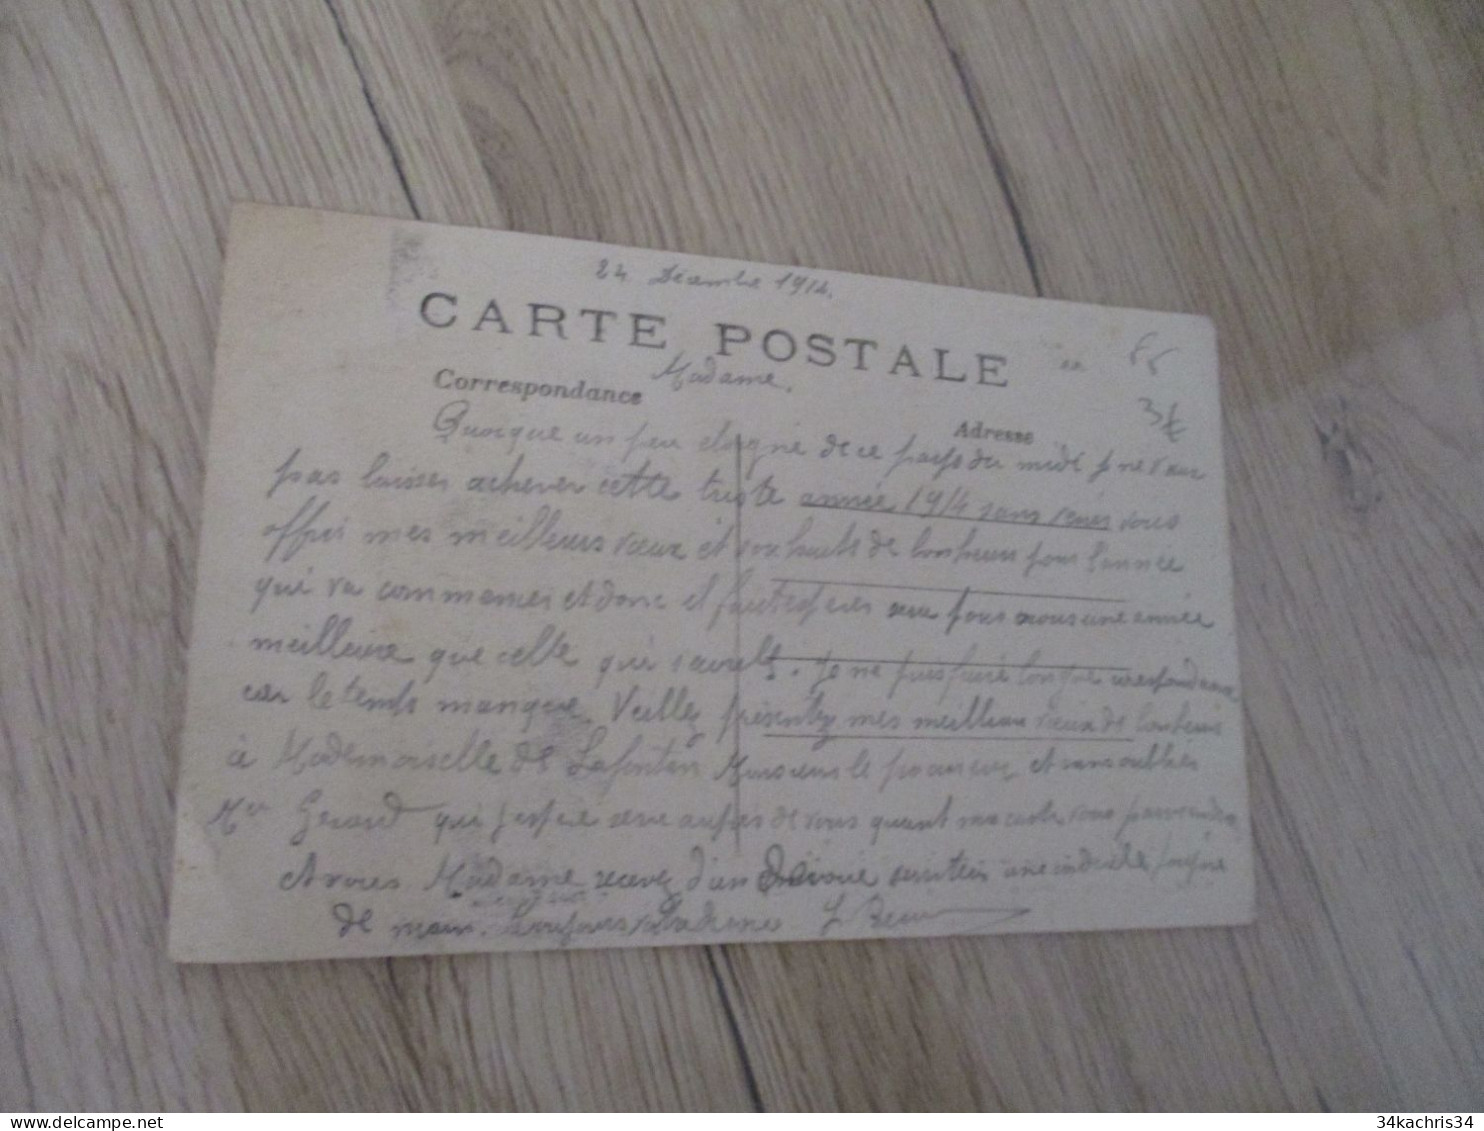 24 Décembre 1914.
CARTE POSTALE
Correspondance
Madame.
Adresse
3€
Quoique un peu eloigné de ce pays du midi je ne veux
pas laisser achever cette triste année 1914 sans venir vous
offrir mes meilleurs vœux et souhaits de bonheur pour l'année
qui va commencer et donc il faut esperer pour nous une année
meilleure que celle qui . Je ne puis faire longue
car le temps manque. Veillez présentez mes meilleurs vœux de bonheur
à Mademoiselle de Lafonton Monsieur le et sans oublier
Mr Gerard qui j'espère sera aupres de vous quant ma carte vous parviendra
A vous Madame recevez d'un Devoué une poigné
de main. Toujours
34kachris34